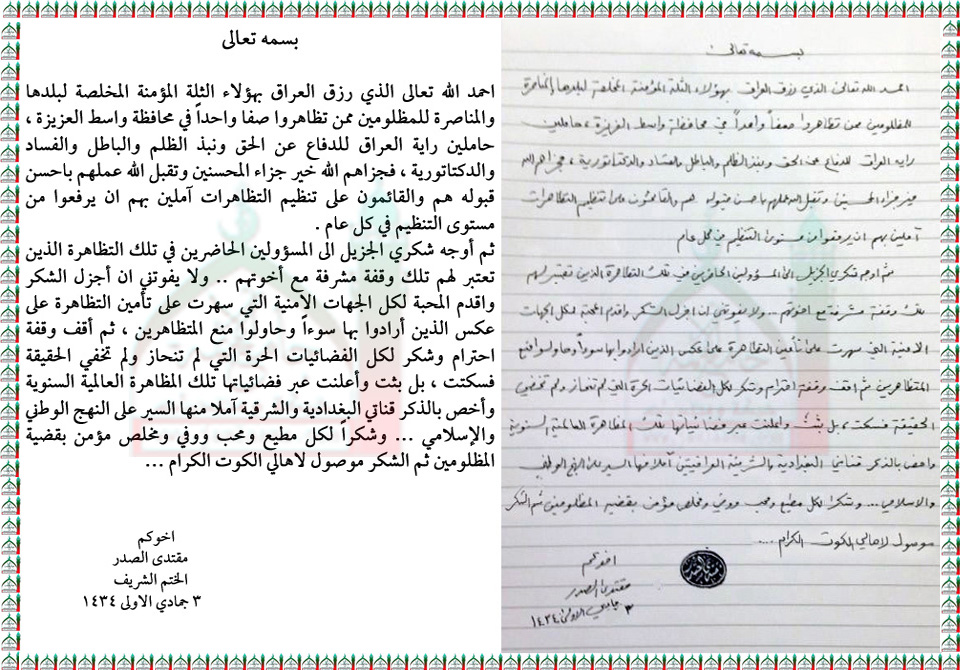 بسمه تعالى
احمد الله تعالى الذي رزق العراق بهؤلاء الثلة المؤمنة المخلصة لبلدها
والمناصرة للمظلومين ممن تظاهروا صفا واحداً في محافظة واسط العزيزة ،
حاملين راية العراق للدفاع عن الحق ونبذ الظلم والباطل والفساد
والدكتاتورية ، فجزاهم الله خير جزاء المحسنين وتقبل الله عملهم باحسن
قبوله هم والقائمون على تنظيم التظاهرات آملين بهم ان يرفعوا من
مستوى التنظيم في كل عام .
ثم أوجه شكري الجزيل الى المسؤولين الحاضرين في تلك التظاهرة الذين
تعتبر لهم تلك وقفة مشرفة مع أخوتهم .. ولا يفوتني ان أجزل الشكر
واقدم المحبة لكل الجهات الامنية التي سهرت على تأمين التظاهرة على
عكس الذين أرادوا بها سوءاً وحاولوا منع المتظاهرين ، ثم أقف وقفة
احترام وشكر لكل الفضائيات الحرة التي لم تنحاز ولم تخفي الحقيقة
فسكتت ، بل بثت وأعلنت عبر فضائياتها تلك المظاهرة العالمية السنوية
وأخص بالذكر قناتي البغدادية والشرقية آملا منها السير على النهج الوطني
والإسلامي ... وشكراً لكل مطيع ومحب ووفي ومخلص مؤمن بقضية
المظلومين ثم الشكر موصول لاهالي الكوت الكرام ...
اخوكم
مقتدى الصدر
الختم الشريف
٣ جمادي الاولى ١٤٣٤
بسمه تعالى
احمد الله تعالى الذي رزق العراق بهؤلاء الثلة المؤمنة المخلصة لبلدها المناصرة
للمظلومين ممن تظاهروا صفاً واحداً في محافظة واسط العزيزة ، حاملين
راية العراق للدفاع عن الحق ونبذ الظلم والباطل والفساد والدكتاتورية ، فجزاهم الله
خير جزاء المحسنين وتقبل الله عملهم باحسن قبوله هم والقائمون على تنظيم التظاهرات
آملين بهم ان يرفعوا من مستوى التنظيم في كل عام
ثم اوجه شكري الجزيل الى المسؤولين الحاضرين في تلك التظاهرة الذين تعتبر لهم
تلك وقفة مشرفة مع اخوتهم ... ولا يفوتني ان اجزل الشكر واقدم المحبة لكل الجهات
الامنية التي سهرت على تأمين التظاهرة على عكس الذين ارادوا بها سوءاً وحاولوا منع
المتظاهرين ثم اقف وقفة احترام وشكر لكل الفضائيات الحرة التي لم تنحاز ولم تخفي
الحقيقة فسكتت ، بل بثت واعلنت عبر فضائياتها تلك المظاهرة العالمية السنوية
واخص بالذكر قناتي البغدادية والشرقية العراقيتين آملا منها السير على النهج الوطني
والاسلامي ... وشكرا لكل مطيع ومحب ووفي ومخلص مؤمن بقضية المظلومين ثم الشكر
موصول لاهالي الكوت الكرام ....
اخوكم
مقتدى الصدر
٣ جمادي الاولى ١٤٣٤